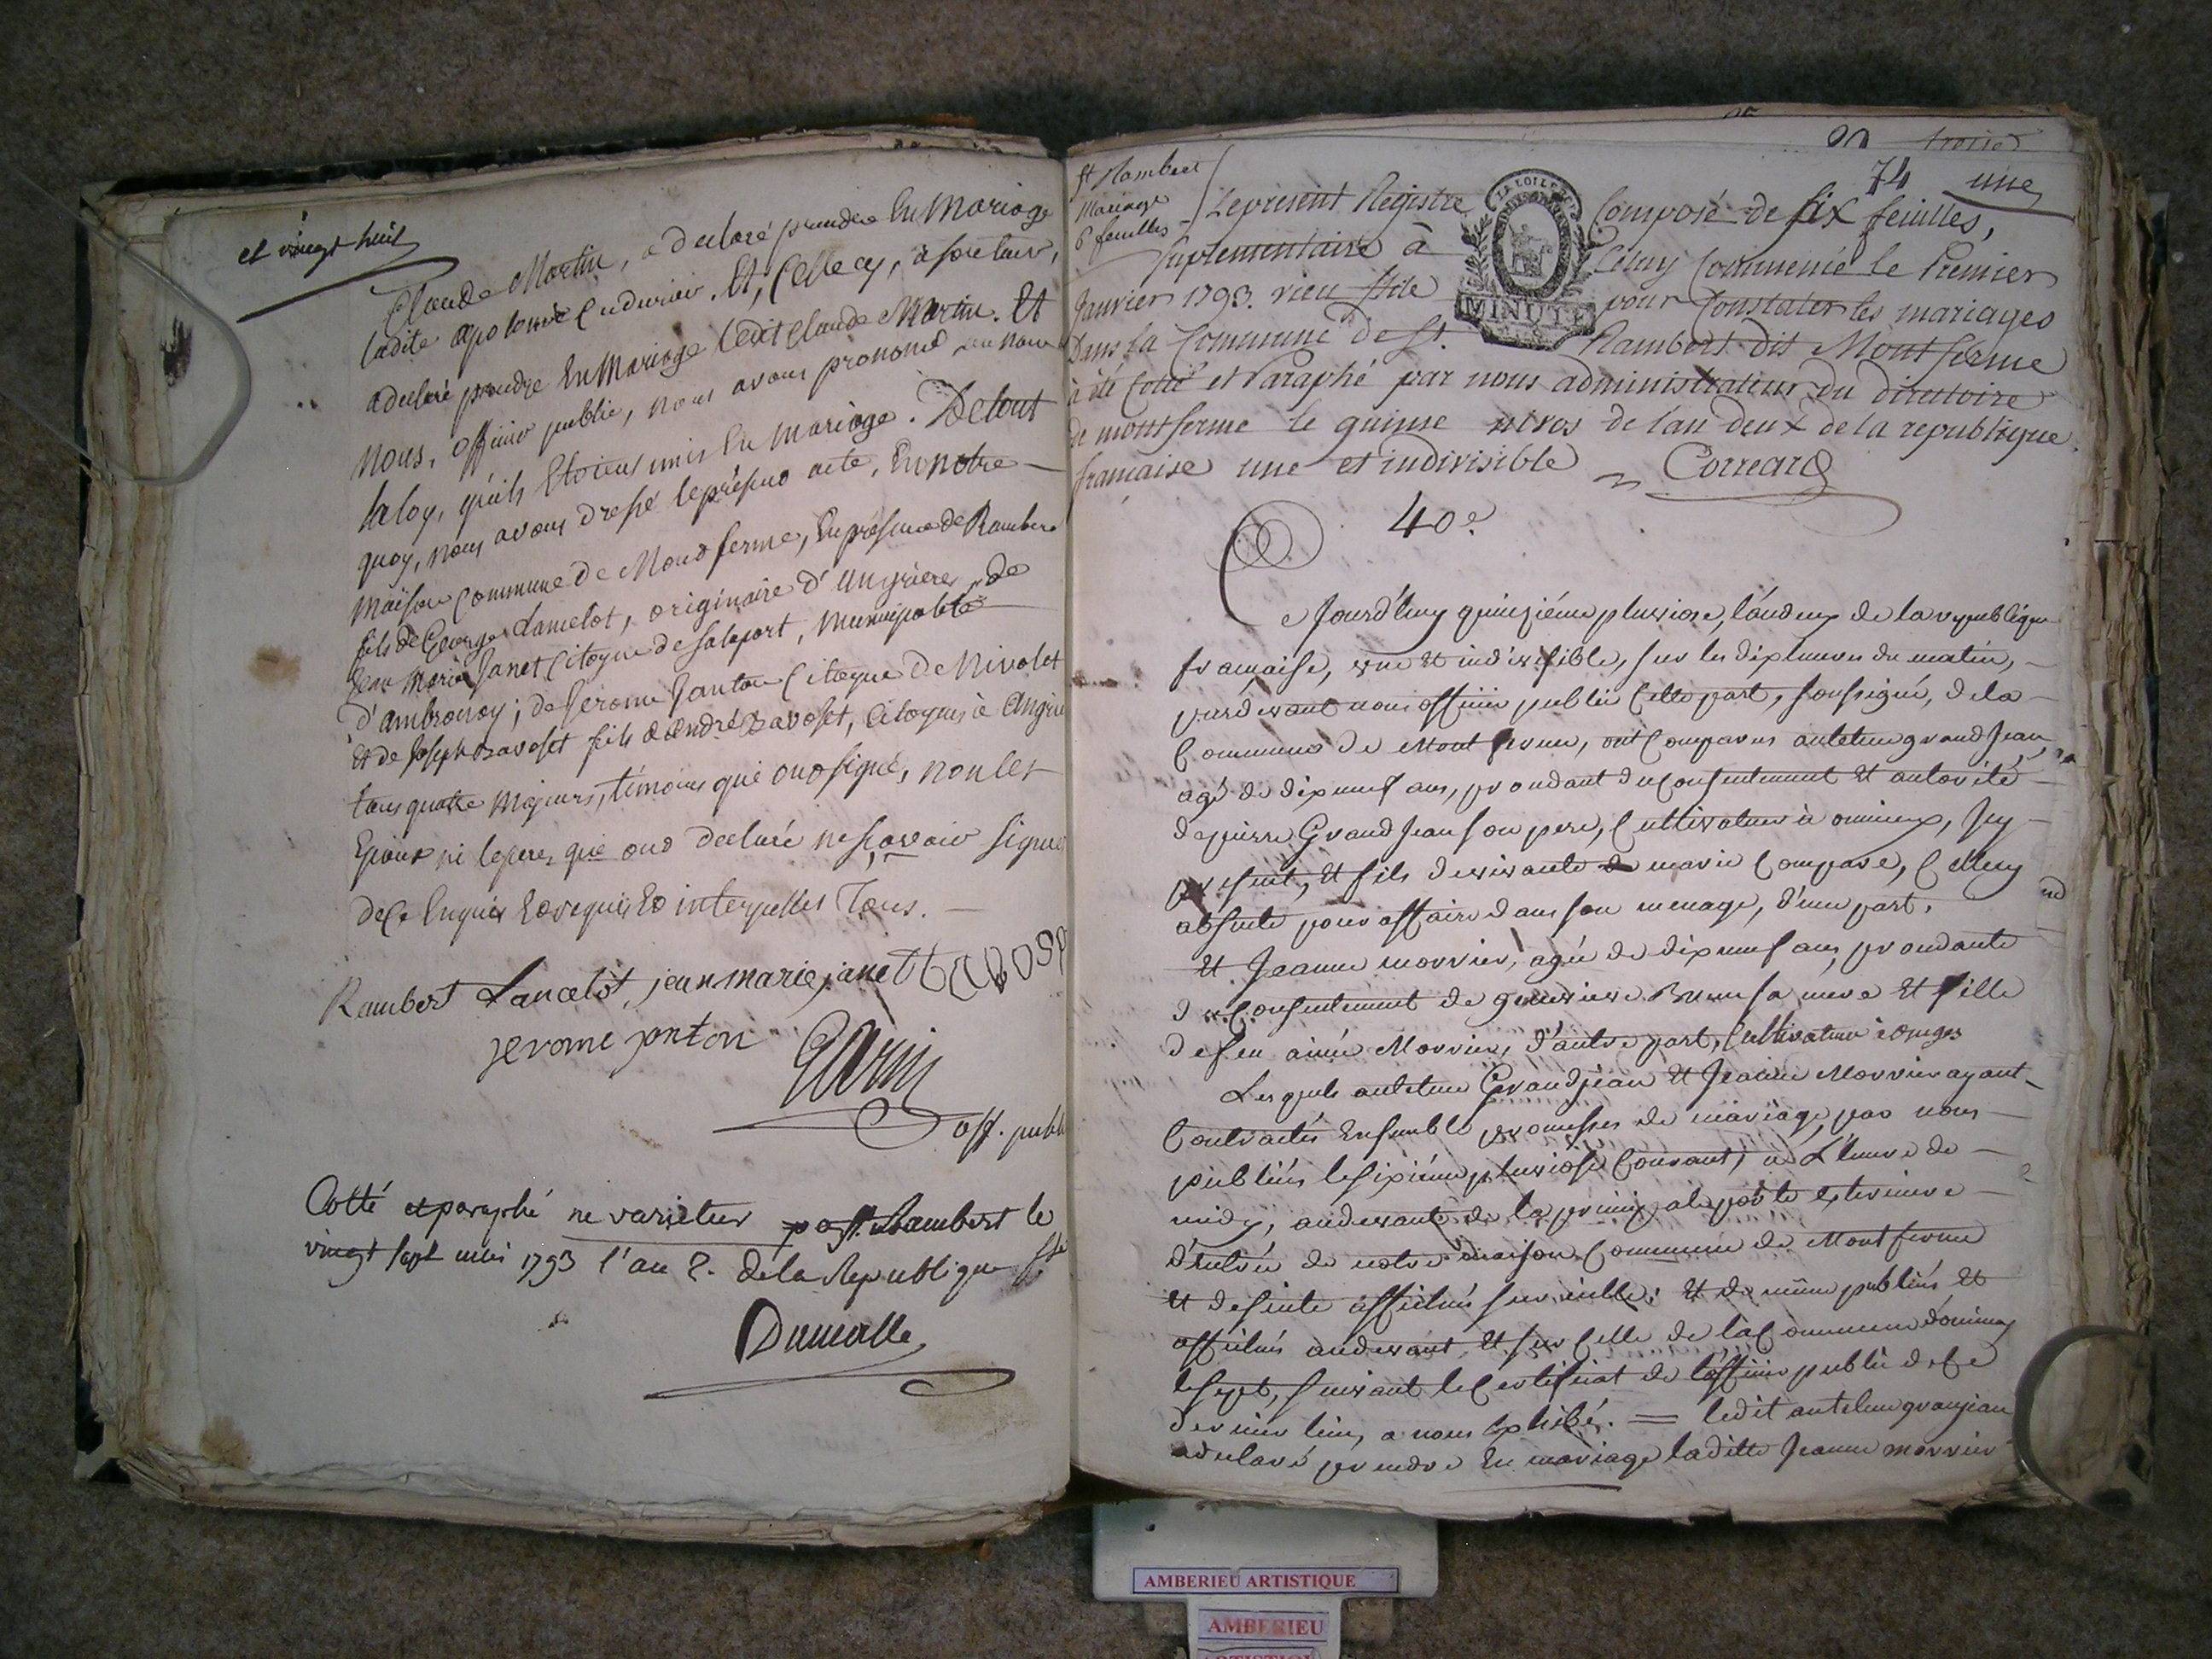 et vingt huit
Claude Martin, a declaré prendre En Mariage
ladite apolonie Et, Celle cy, à son tour,
a declaré prendre En Mariage ledit Claude Martin. Et
nous, officier public, nous avons prononcé au nom
la loy, qu'ils Etoient unis En mariage. De tout
quoy, nous avons dressé le présent acte, En notre
maison Commune de Mont ferme, En présence de Rambert
fils de George Lancelot, originaire d'angrieres, de
Jean Marie Janet Citoyen de Salaport, Municipalité
d'ambronay; de Jerome Janton Citoyen de Nivolet
Et de Joseph Savoset fils d'andré Savoset, Citoyens à
tous quatre Majeurs, témoins qui ont signé, non les
Epoux ni le pere, qui ont declaré ne sçavoir signer
de Ce Enquis Et requis Et interpellés Tous.
Rambert Lancelot, jean marie janet
jerome jonton
off. publ
Cotté et paraphé ne varietur p St. Rambert le
vingt sept mai 1793 l'an 2. de la Republique
St Rambert
Mariage
6 feuilles
74 une
Le présent Registre Composé de six feuilles,
Suplementaire à Celuy Commencé le Premier
Janvier 1793. vieu stile pour Constater les mariages
Dans la Commune de St. Rambert dit Montferme
à été Cotté et Paraphé par nous administrateur du directoire
de montferme le quinse nivos de l'an deux de la republique
francaise une et indivisible Correard
LA LOI LE
MINUTE
40e.
Ce Jourd'huy quinziéme pluviose, l'an deux de la republique
française, une Et indivisible, sur les dix heures du matin,
pardevant nous officier public Cette part, soussigné, de la
Commune de Mont ferme, ont Comparus antelme grand Jean,
agé de dix neuf ans, procedant du Consentement Et autorité
de pierre Grand Jean son pere, Cultivateur à oncieux, Jcy
present, Et fils de vivante marie Compare, Celle cy
absente pour affaire dans son menage, d'une part.
Et Jeanne morrier, agée de dix neuf ans, procedante
du Consentement de genevieve Brun sa mere Et fille
de feu aimé Morrier, d'autre part, Cultivateur
Lesquels antelme Grandjean Et Jeanne Morrier ayant
Contractés Ensemble promesses de mariage, par nous
publiées le sixiéme pluviose Courant, à L'heure de
midy, au devant de la principale porte exterieure
d'entrée de notre maison Commune de Mont ferme
Et desuite affichées sur icelle; Et de même publiées Et
affichées au devant Et sur Celle de la Commune
le sept, suivant le Certificat de l'officier public de Ce
dernier lieu, a nous Exhibé. = ledit antelme granjean
a declaré prendre En mariage ladite Jeanne morrier
AMBERIEU ARTISTIQUE
AMBERIEU